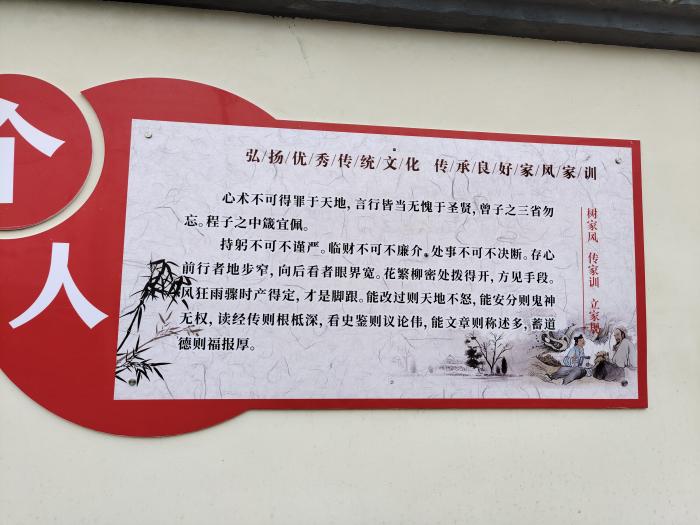 个
人
弘/扬/优/秀/传/统/文/化 传/承/良/好/家/风/家/训
心术不可得罪于天地，言行皆当无愧于圣贤，曾子之三省勿
忘。程子之中箴宜佩。
持躬不可不谨严。临财不可不廉介。处事不可不决断。存心
前行者地步窄，向后看者眼界宽。花繁柳密处拨得开，方见手段。
风狂雨骤时产得定，才是脚跟。能改过则天地不怒，能安分则鬼神
无权，读经传则根柢深，看史鉴则议论伟，能文章则称述多，蓄道
德则福报厚。
树家风 传家训 立家规